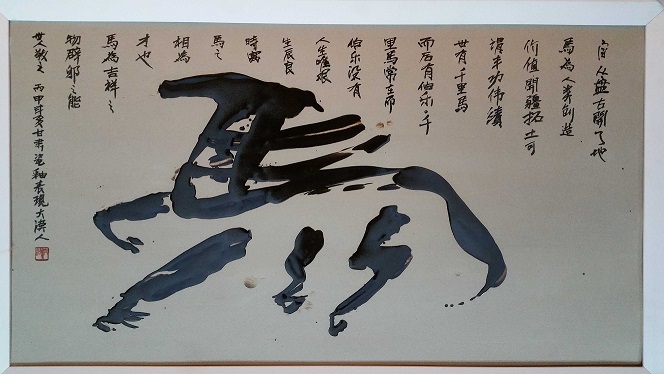 自从盘古開了地
馬為人类創造
价值開疆拓土可
謂丰功伟績
世有千里馬
而后有伯乐千
里馬常在而
伯乐没有
人生唯恨
生辰良
時
馬之
相為
才也
馬為吉祥之
物辟邪之能
世人敬之 丙申年 甘肃瓷釉表現大漢人
馬